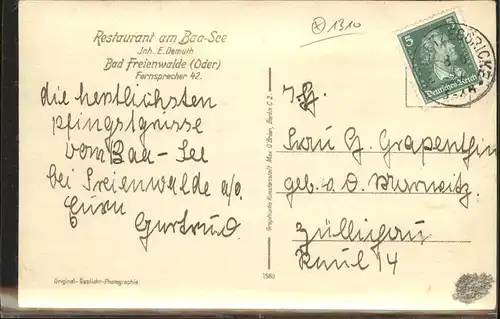 Restaurant am Baa-See
Inh. E. Demuth
Bad Freienwalde (Oder)
Fernsprecher 42.
1310
5
Deutsches Reich
die herzlichsten
Pfingstgrüsse
vom Baa-See
bei Freienwalde a/o.
Gertrud
Frau G. Grapenthin
geb. v. d. Marwitz
Züllichau
14
Graphische Kunstanstalt Max O'Brien, Berlin C 2.
1580
Original-Gaslicht-Photographie